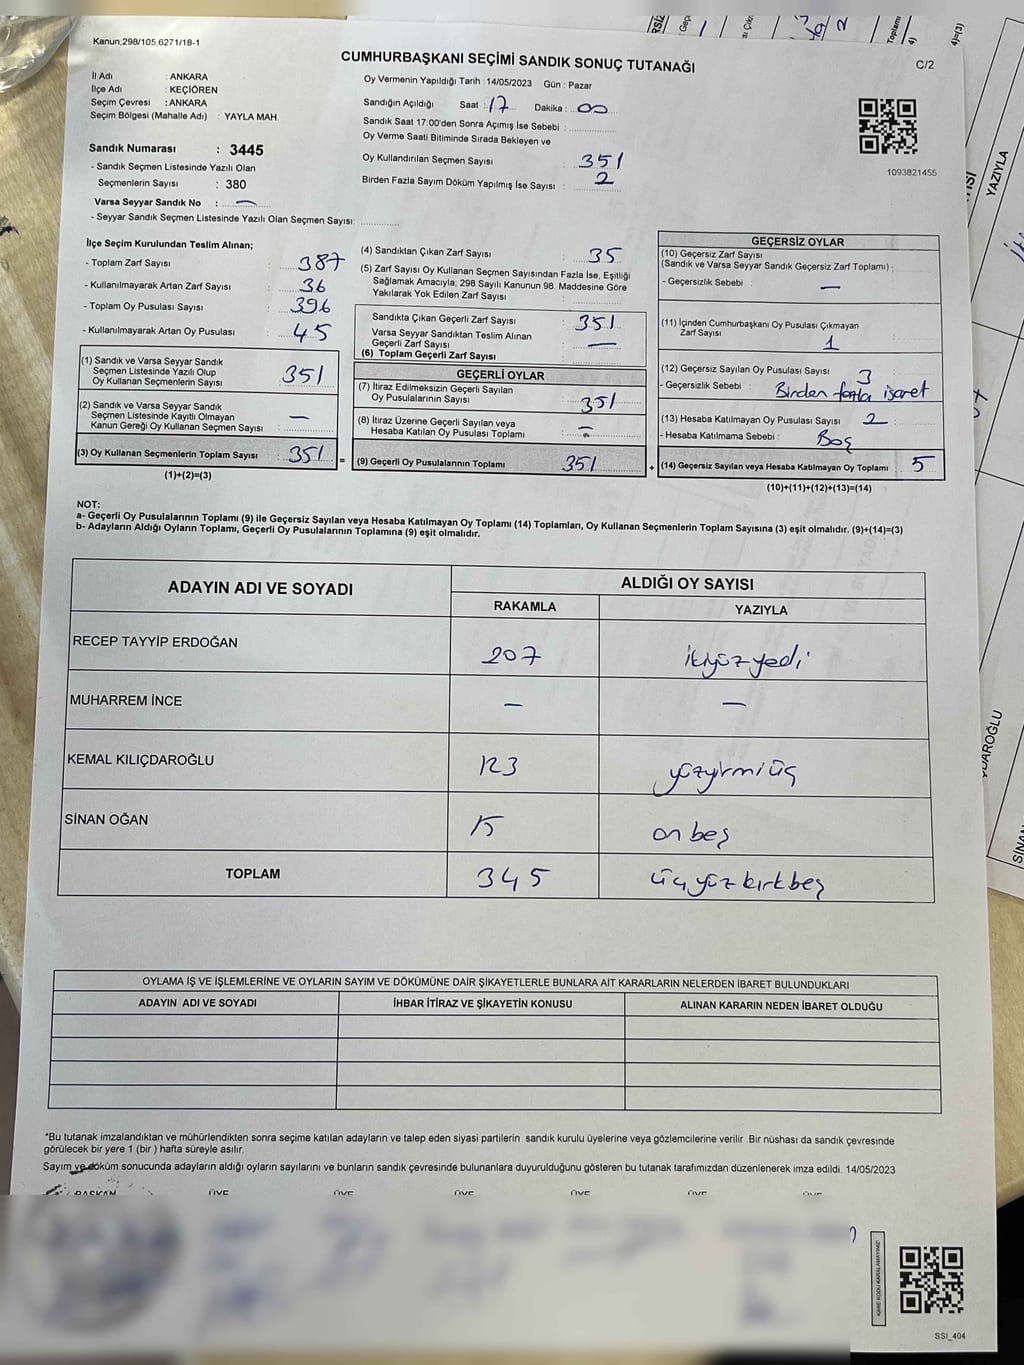 Kanun,298/105,6271/18-1
CUMHURBAŞKANI SEÇİMİ SANDIK SONUÇ TUTANAĞI
C/2
İl Adı : ANKARA
İlçe Adı : KEÇİÖREN
Seçim Çevresi : ANKARA
Seçim Bölgesi (Mahalle Adı) : YAYLA MAH.
Sandık Numarası : 3445
- Sandık Seçmen Listesinde Yazılı Olan
Seçmenlerin Sayısı : 380
Varsa Seyyar Sandık No : —
- Seyyar Sandık Seçmen Listesinde Yazılı Olan Seçmen Sayısı:
Oy Vermenin Yapıldığı Tarih : 14/05/2023 Gün : Pazar
Sandığın Açıldığı Saat : 17 Dakika : 00
Sandık Saat 17:00'den Sonra Açımış İse Sebebi :
Oy Verme Saati Bitiminde Sırada Bekleyen ve
Oy Kullandırılan Seçmen Sayısı : 351
Birden Fazla Sayım Döküm Yapılmış İse Sayısı : 2
1093821455
İlçe Seçim Kurulundan Teslim Alınan;
- Toplam Zarf Sayısı : 387
- Kullanılmayarak Artan Zarf Sayısı : 36
- Toplam Oy Pusulası Sayısı : 396
- Kullanılmayarak Artan Oy Pusulası : 45
(1) Sandık ve Varsa Seyyar Sandık
Seçmen Listesinde Yazılı Olup
Oy Kullanan Seçmenlerin Sayısı : 351
(2) Sandık ve Varsa Seyyar Sandık
Seçmen Listesinde Kayıtlı Olmayan
Kanun Gereği Oy Kullanan Seçmen Sayısı : —
(3) Oy Kullanan Seçmenlerin Toplam Sayısı : 351
(1)+(2)=(3)
(4) Sandıktan Çıkan Zarf Sayısı : 35
(5) Zarf Sayısı Oy Kullanan Seçmen Sayısından Fazla İse, Eşitliği
Sağlamak Amacıyla; 298 Sayılı Kanunun 98. Maddesine Göre
Yakılarak Yok Edilen Zarf Sayısı :
Sandıkta Çıkan Geçerli Zarf Sayısı : 351
Varsa Seyyar Sandıktan Teslim Alınan
Geçerli Zarf Sayısı : —
(6) Toplam Geçerli Zarf Sayısı
GEÇERLİ OYLAR
(7) İtiraz Edilmeksizin Geçerli Sayılan
Oy Pusulalarının Sayısı : 351
(8) İtiraz Üzerine Geçerli Sayılan veya
Hesaba Katılan Oy Pusulası Toplamı : —
(9) Geçerli Oy Pusulalarının Toplamı : 351
GEÇERSİZ OYLAR
(10) Geçersiz Zarf Sayısı
(Sandık ve Varsa Seyyar Sandık Geçersiz Zarf Toplamı) :
- Geçersizlik Sebebi : —
(11) İçinden Cumhurbaşkanı Oy Pusulası Çıkmayan
Zarf Sayısı : 1
(12) Geçersiz Sayılan Oy Pusulası Sayısı : 3
- Geçersizlik Sebebi : Birden fazla işaret
(13) Hesaba Katılmayan Oy Pusulası Sayısı : 2
- Hesaba Katılmama Sebebi : Boş
(14) Geçersiz Sayılan veya Hesaba Katılmayan Oy Toplamı : 5
(10)+(11)+(12)+(13)=(14)
NOT:
a- Geçerli Oy Pusulalarının Toplamı (9) ile Geçersiz Sayılan veya Hesaba Katılmayan Oy Toplamı (14) Toplamları, Oy Kullanan Seçmenlerin Toplam Sayısına (3) eşit olmalıdır. (9)+(14)=(3)
b- Adayların Aldığı Oyların Toplamı, Geçerli Oy Pusulalarının Toplamına (9) eşit olmalıdır.
ADAYIN ADI VE SOYADI ALDIĞI OY SAYISI
RAKAMLA YAZIYLA
RECEP TAYYİP ERDOĞAN 207 ikiyüzyedi
MUHARREM İNCE — —
KEMAL KILIÇDAROĞLU 123 yüzyirmiüç
SİNAN OĞAN 15 on beş
TOPLAM 345 üçyüzkırkbeş
OYLAMA İŞ VE İŞLEMLERİNE VE OYLARIN SAYIM VE DÖKÜMÜNE DAİR ŞİKAYETLERLE BUNLARA AİT KARARLARIN NELERDEN İBARET BULUNDUKLARI
ADAYIN ADI VE SOYADI İHBAR İTİRAZ VE ŞİKAYETİN KONUSU ALINAN KARARIN NEDEN İBARET OLDUĞU
*Bu tutanak imzalandıktan ve mühürlendikten sonra seçime katılan adayların ve talep eden siyasi partilerin sandık kurulu üyelerine veya gözlemcilerine verilir. Bir nüshası da sandık çevresinde
görülecek bir yere 1 (bir) hafta süreyle asılır.
Sayım ve döküm sonucunda adayların aldığı oyların sayılarını ve bunların sandık çevresinde bulunanlara duyurulduğunu gösteren bu tutanak tarafımızdan düzenlenerek imza edildi. 14/05/2023
BAŞKAN ÜYE ÜYE ÜYE ÜYE ÜYE ÜYE
KARE KODU KARALAMAYINIZ
SSI_404
YAZIYLA